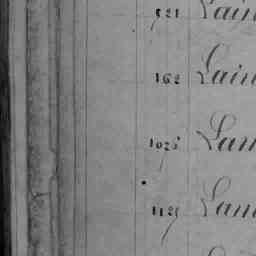 521 Lain
162 Lain
1025 Lam
1125 Lam